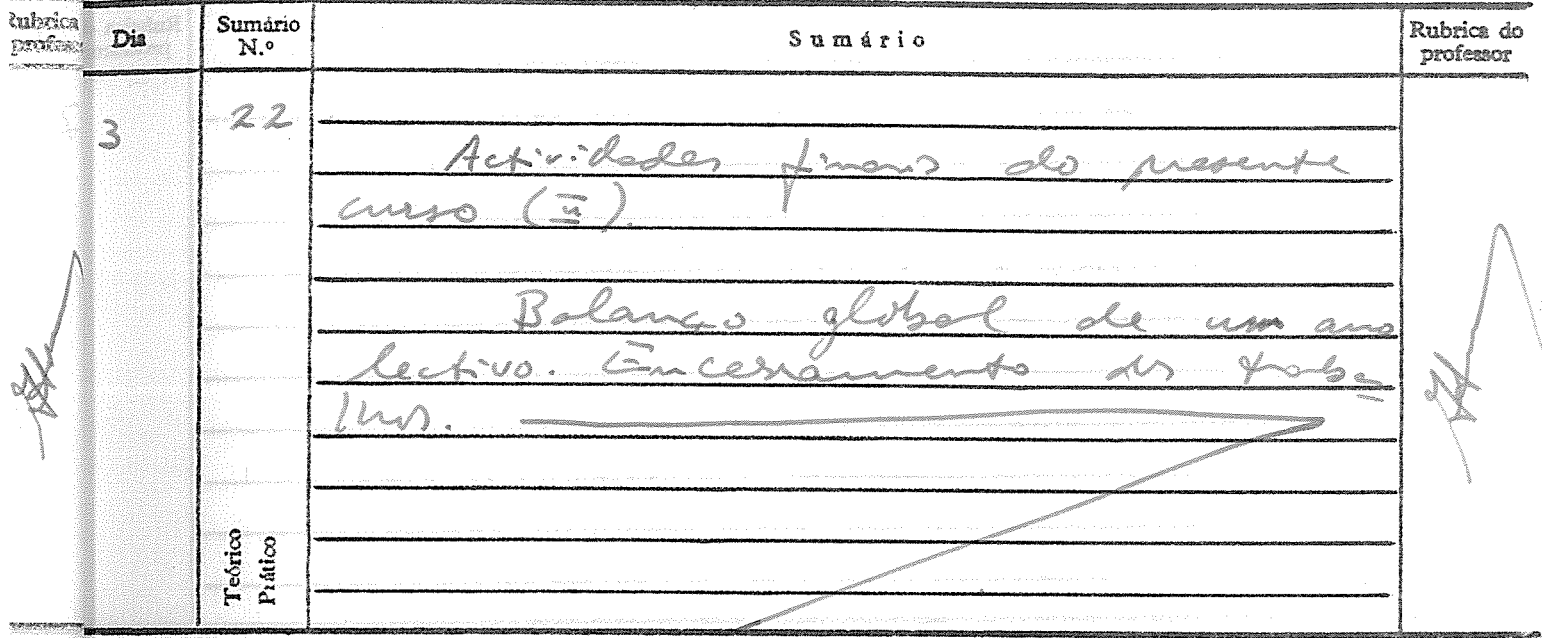 Rubrica
profess
Dia
Sumário
N.º
Sumário
Rubrica do
professor
3
22
Actividades finais do presente
curso (II).
Balanço global de um ano
lectivo. Encerramento dos traba=
lhos.
Teórico
Prático